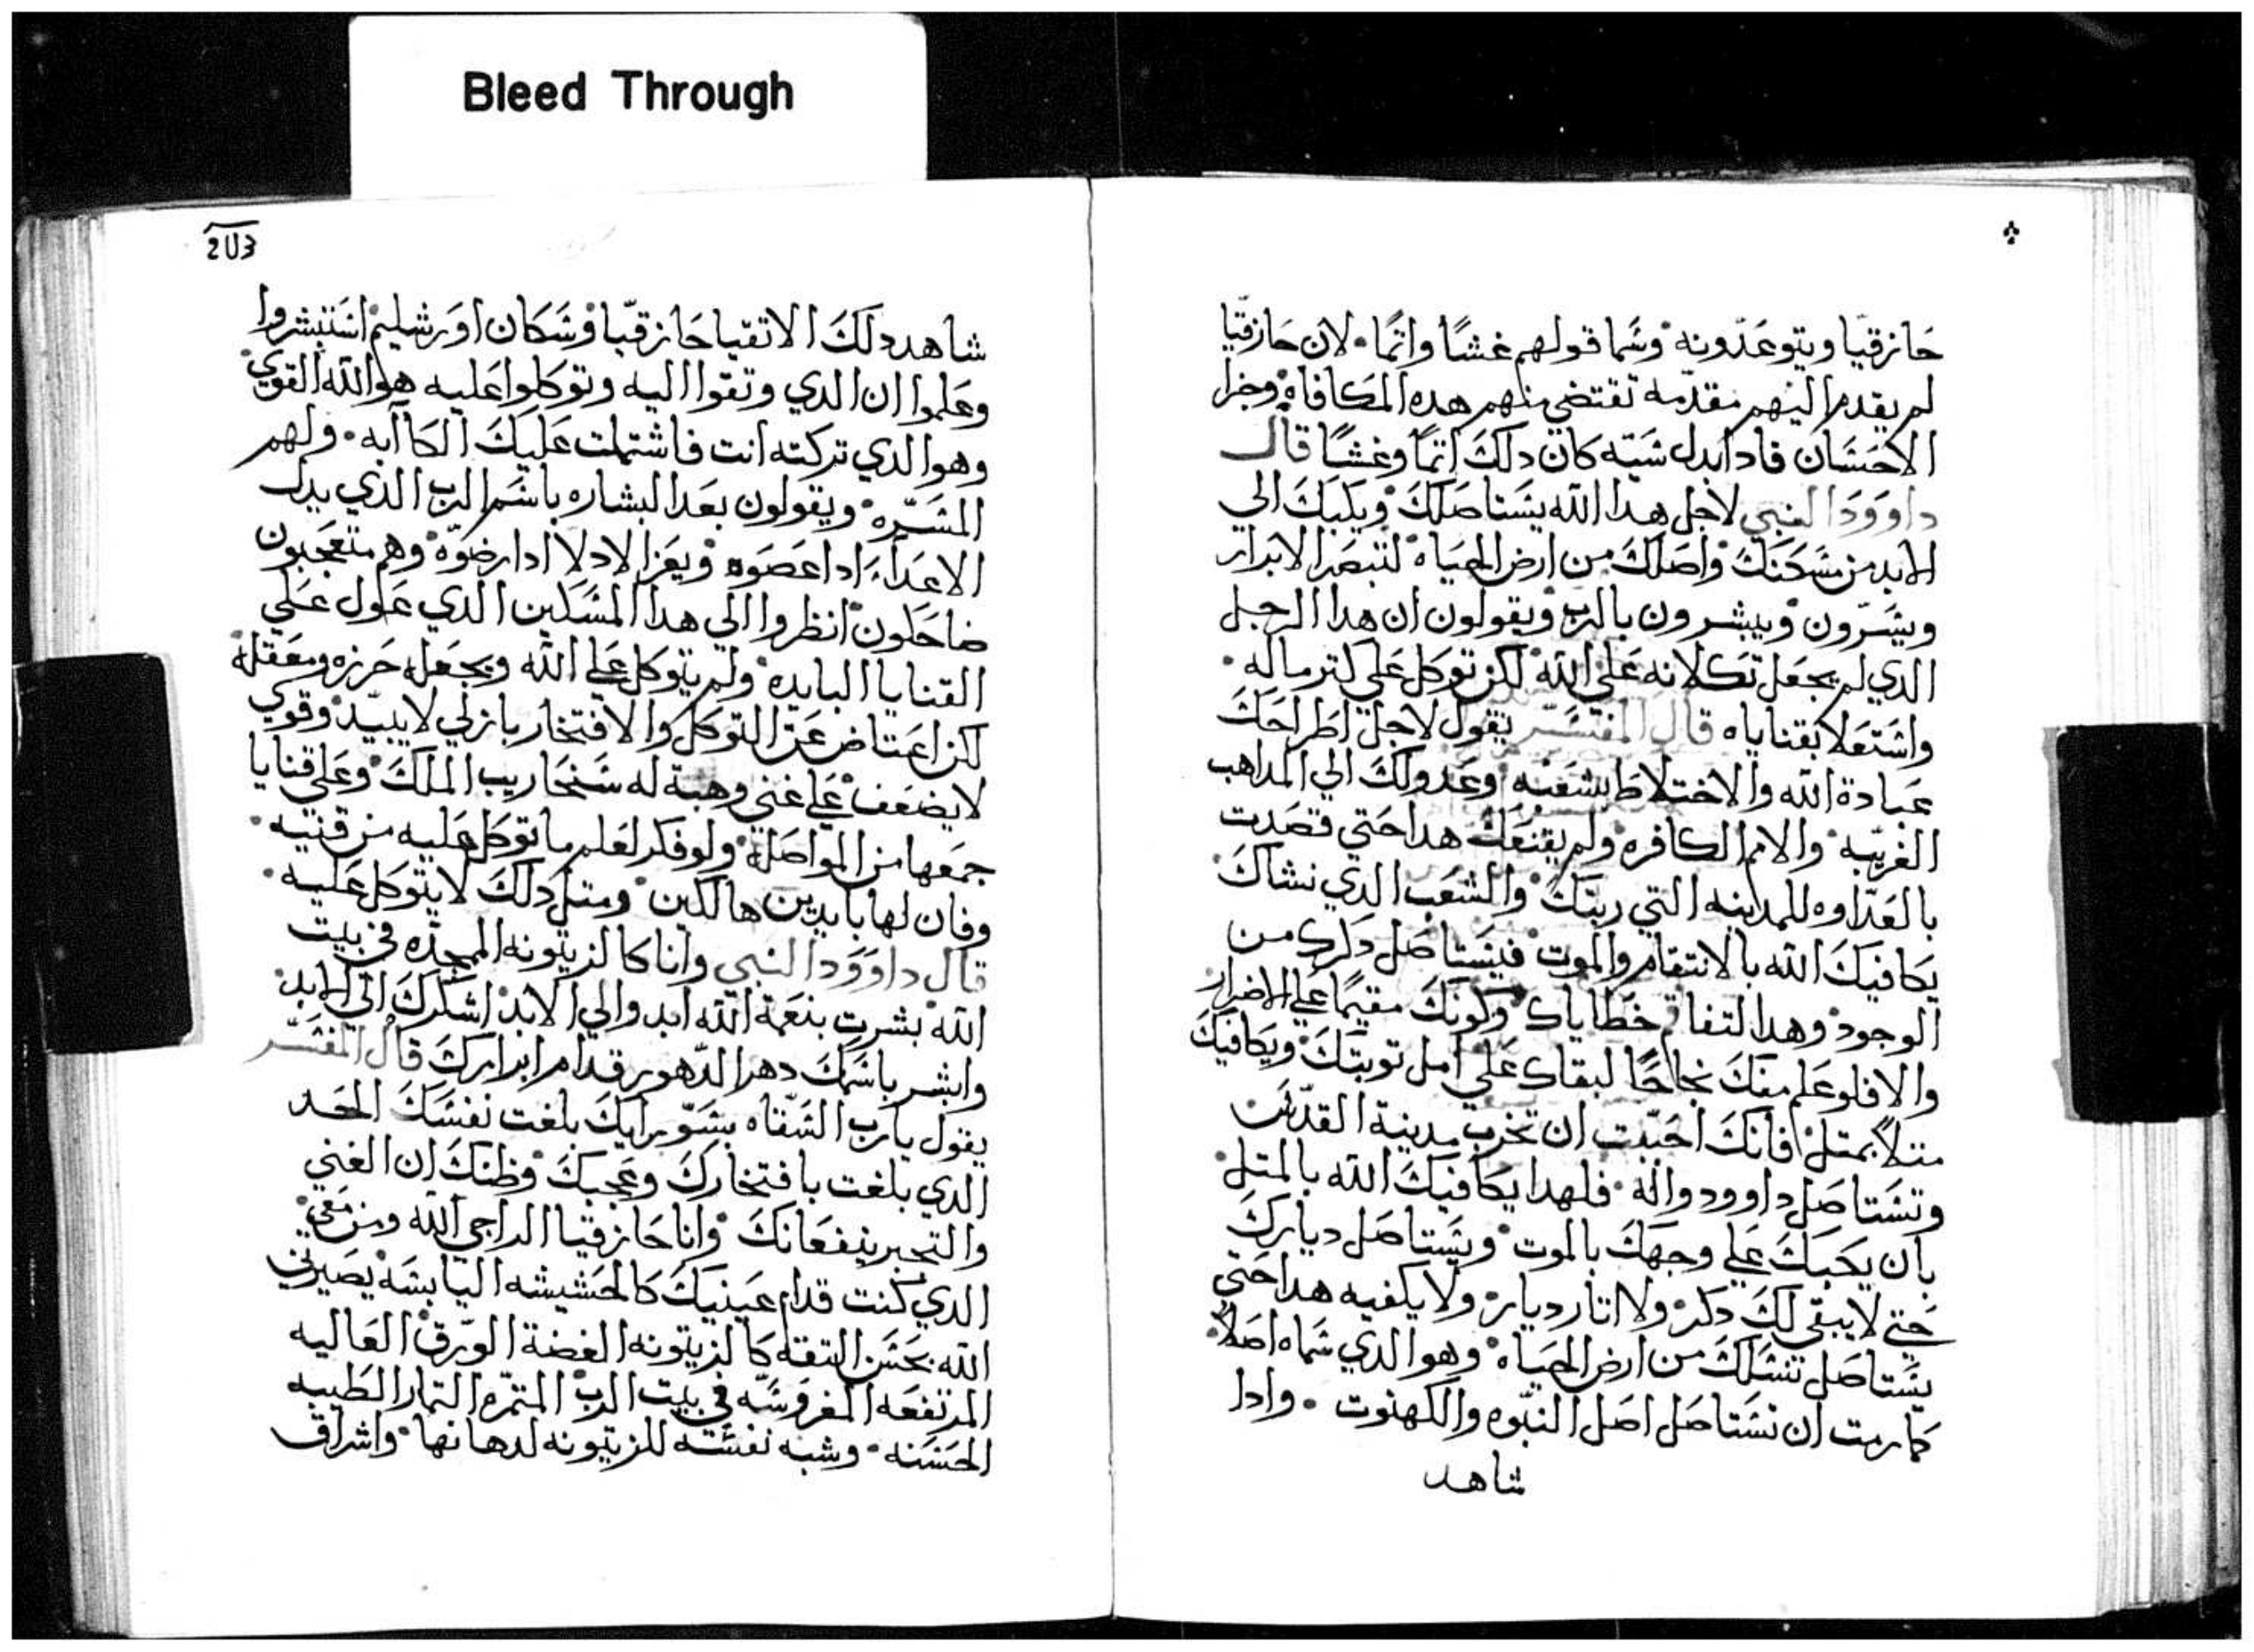 Bleed Through
حازقيّا ويتوعّدونه وسَما قولهم غشًا واتمًا. لان حازقيّا
لم يقدم اليهم مقدّمه تقتضي منهم هده المكافاه وجزا
الاحسَان فادا بدل سَيّه كان دلك اتمًا وغشًا قال
داوود النبي لاجل هدا الله يستاصلك ويكبك الي
الابد من مسَكنك واصلك من ارض الحياه لتبصر الابرار
ويسَرّون ويبشرون بالرب ويقولون ان هدا الرجل
الدي لم يجعل تكلانه علي الله لكن توكل علي كتر ماله.
واشتعلا بقناياه قال المفسّر يقول لاجل اطراحك
عبادة الله والاختلاط بشعبه وعدولك الي المداهب
الغريبه والامم الكافره ولم يقنعك هدا حتي قصدت
بالعدّاوه للمدينه التي ربتك والشعب الدي نشاك
يكافيك الله بالانتقام والموت فيستاصل دكرك من
الوجود وهدا لتفاقم خطاياك وكونك مقيمًا علي الاضرار
والا فلو علم منك نجاحًا لبقاك علي امل توبتك ويكافيك
متلاً بمتل فانك احببت ان تخرب مدينة القدّس
وتستاصل داوود واله. فلهدا يكافيك الله بالمتل
بان يكبك علي وجهك بالموت ويستاصل ديارك
حتي لا يبقي لك دكر ولا اتار ديار ولا يكفيه هدا حتي
يستاصل نسَلك من ارض الحياه وهو الدي سَماه اصلاً
كما رمت ان نستاصل اصل النبّوه والكهنوت. وادا
شاهد
203
شاهد دلك الاتقيا حازقيّا وسَكان اورشليم استبشروا
وعلموا ان الدي وتقوا اليه وتوكلوا عليه هو الله القوي
وهو الدي تركته انت فاشتملت عليك الكاآبه. ولهم
المسَرّه ويقولون بعد البشاره باسَم الرب الدي يدل
الاعدآء ادا عصَوه ويعز الادلا ادا رضوّه وهم متعجبون
ضاحكون انظروا الي هدا المسَكين الدي عول علي
القنايا البايده ولم يتوكل علي الله ويجعله حرزه ومعقله
لكن اعتاض عن التوكل والافتخار بازلي لا يبيّد وقوي
لا يضعف علي غني وهبة له سنحاريب الملك وعلي قنايا
جمعها من المواصَله ولو فكر لعلم ما توكل عليه من قنيه.
وفان لها بايدين هالكين ومتل دلك لا يتوكل عليه.
قال داوود النبي وانا كالزيتونه الممجدّه في بيت
الله بشرت بنعمة الله ابد والي الابد اشكرك الي الابد
وابشر باسَمك دهر الدّهور قدام ابرارك قال المفسّر
يقول يارب السّقاه بسَوّ رايك بلغت نفسَك الحد
الدي بلغت بافتخارك وعجبك وظنك ان الغني
والتجبر ينفعانك وانا حازقيا الراجي الله ومن معي
الدي كنت قدام عينيك كالحشيشه اليابسَه يصيرني
الله بحسَن التقه كالزيتونه الغضة الوّرق العاليه
المرتفعه المغروسَه في بيت الرب المتمّره التمار الطيبه
الحسَنه. وشبه نفسَته للزيتونه لدهانها واشراق